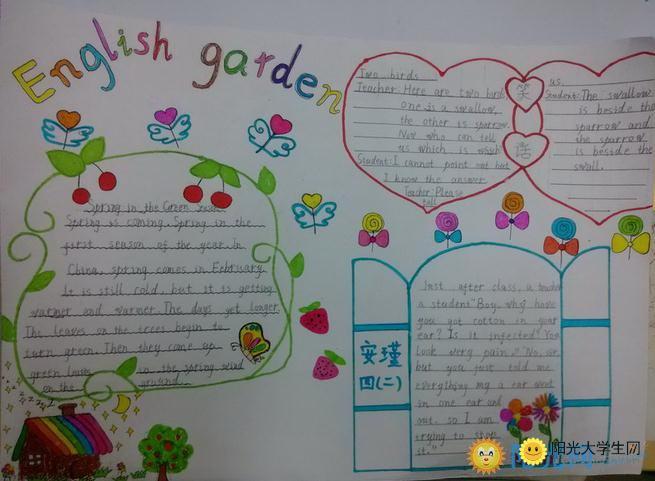 English garden
Spring in the Green
Spring is coming. Spring in the
first season of the year. In
China, spring comes in February.
It is still cold, but it is getting
warmer and warmer. The days get longer.
The leaves on the trees begin to
turn green. Then they come up
green leaves in the spring wind
on the ground.
Two birds
Teacher: Here are two birds,
one is a swallow,
the other is sparrow.
Now who can tell
us which is which
Student: I cannot point out but
I know the answer
Teacher: Please
tell
笑
话
us.
Student: The swallow
is beside the
sparrow and
the sparrow
is beside the
swall.
安瑾
四(二)
Just after class, a teache
a student "Boy, why have
you got cotton in your
ear? Is it infected? You
look very pain." "No, sir
but you just told me
everything my a ear went
in one ear and
out. so I am
trying to stop
it."
阳光大学生网